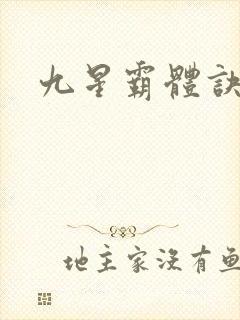 九星霸體訣
地主家沒有魚